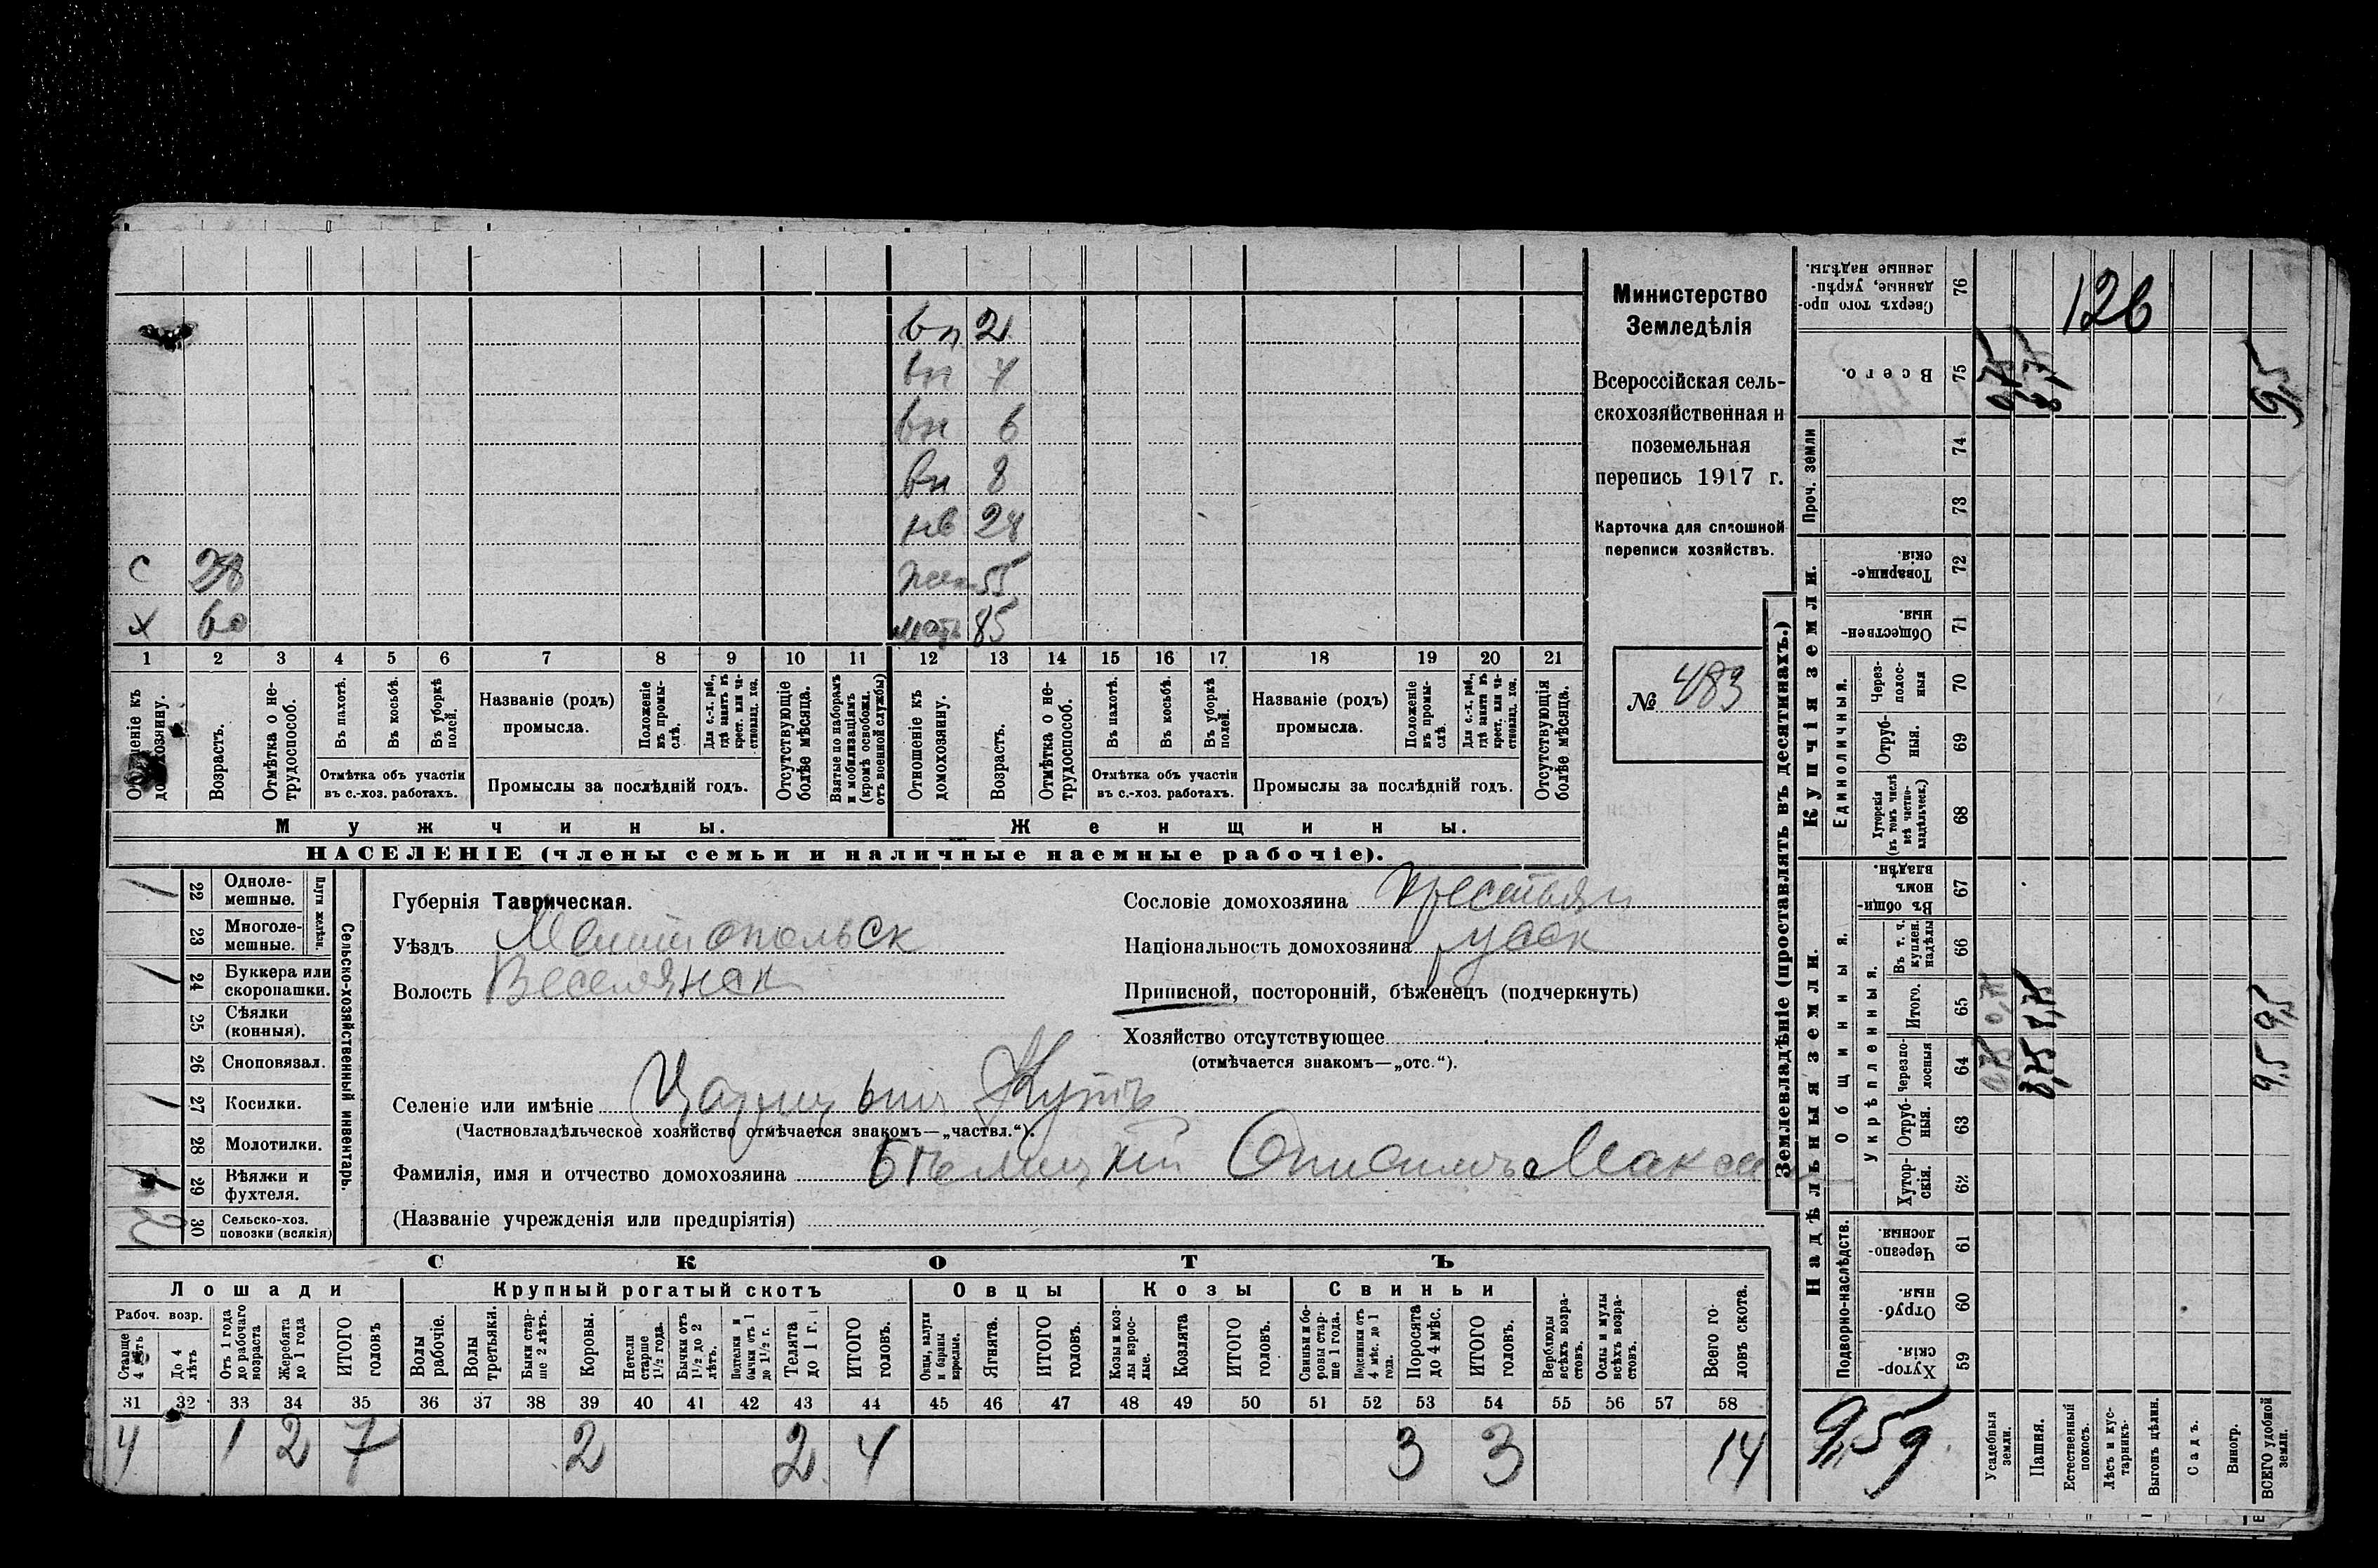 вп 2
вп 4
вп 6
вп 8
нв 28
С 28 жен 55
х 60 мать 85
1 2 3 4 5 6 7 8 9 10 11 12 13 14 15 16 17 18 19 20 21
Отношеніе къ домохозяину.
Возрастъ.
Отмѣтка о нетрудоспособ.
Въ пахотѣ.
Въ косьбѣ.
Въ уборкѣ полей.
Отмѣтка объ участіи въ с.-хоз. работахъ.
Названіе (родъ) промысла.
Положеніе въ промыслѣ.
Для с.-х. раб., гдѣ занятъ въ крест. или частновлад. хоз.
Промыслы за послѣдній годъ.
Отсутствующіе болѣе мѣсяца.
Взятые по наборамъ и мобилизаціямъ (кромѣ освобожд. отъ военной службы)
Отношеніе къ домохозяину.
Возрастъ.
Отмѣтка о нетрудоспособ.
Въ пахотѣ.
Въ косьбѣ.
Въ уборкѣ полей.
Отмѣтка объ участіи въ с.-хоз. работахъ.
Названіе (родъ) промысла.
Положеніе въ промыслѣ.
Для с.-х. раб., гдѣ занятъ въ крест. или частновлад. хоз.
Промыслы за послѣдній годъ.
Отсутствующія болѣе мѣсяца.
Мужчины. Женщины.
НАСЕЛЕНІЕ (члены семьи и наличные наемные рабочіе).
Министерство
Земледѣлія
Всероссійская сель-
скохозяйственная и
поземельная
перепись 1917 г.
Карточка для сплошной
переписи хозяйствъ.
№ 483
Сельско-хозяйственный инвентарь.
Плуги желѣз.
/ 22 Однолемешные.
23 Многолемешные.
/ 24 Буккера или скоропашки.
25 Сѣялки (конныя).
26 Сноповязал.
/ 27 Косилки.
28 Молотилки.
/ 29 Вѣялки и фухтеля.
2 30 Сельско-хоз. повозки (всякія)
Губернія Таврическая.
Уѣздъ Мелитопольск
Волость Веселянск
Сословіе домохозяина крестьян
Національность домохозяина русск
Приписной, посторонній, бѣженецъ (подчеркнуть)
Хозяйство отсутствующее
(отмѣчается знакомъ—„отс.“).
Селеніе или имѣніе Царицынъ Кутъ
(Частновладѣльческое хозяйство отмѣчается знакомъ—„частвл.“).
Фамилія, имя и отчество домохозяина Бѣлицкій Онисимъ Макси
(Названіе учрежденія или предпріятія)
СКОТЪ
Лошади Крупный рогатый скотъ Овцы Козы Свиньи
Рабоч. возр.
Старше 4 лѣтъ
До 4 лѣтъ
Отъ 1 года до рабочаго возраста
Жеребята до 1 года
ИТОГО головъ
Волы рабочіе.
Волы третьяки.
Быки старше 2 лѣтъ.
Коровы.
Нетели старше 1½ года.
Бычки отъ 1½ до 2 лѣтъ.
Подтелки и бычки отъ 1 до 1½ г.
Телята до 1 г.
ИТОГО головъ.
Овцы, валухи и бараны взрослые.
Ягнята.
ИТОГО головъ.
Козы и козлы взрослые.
Козлята
ИТОГО головъ.
Свиньи и боровы старше 1 года.
Подсвинки отъ 4 мѣс. до 1 года.
Поросята до 4 мѣс.
ИТОГО головъ.
Верблюды всѣхъ возрастовъ.
Ослы и мулы всѣхъ возрастовъ.
Всего головъ скота.
31 32 33 34 35 36 37 38 39 40 41 42 43 44 45 46 47 48 49 50 51 52 53 54 55 56 57 58
4 1 2 7 2 2 4 3 3 14
Землевладѣніе (проставлять въ десятинахъ.)
Купчія земли.
Надѣльныя земли.
Проч. земли
Единоличныя.
Общинныя.
Укрѣпленныя.
Подворно-наслѣдств.
Сверхъ того проданные, укрѣпленные надѣлы. 76
Всего. 75
74
73
Товарищескія. 72
Общественныя. 71
Черезполосныя 70
Отрубныя. 69
Хуторскія (въ томъ числѣ всѣ частновладѣльческ.) 68
Въ общинномъ владѣн. 67
Въ т. ч. куплен. надѣлы 66
Итого. 65
Черезполосныя 64
Отрубныя. 63
Хуторскія. 62
Черезполосныя. 61
Отрубныя. 60
Хуторскія. 59
126
0,75 8,75 9,5
0,75 8,75 9,5
0,75 8,75 9,5
9,5 9
Усадебныя земли.
Пашня.
Естественный покосъ.
Лѣсъ и кустарникъ.
Выгонъ цѣлин.
Садъ.
Виногр.
ВСЕГО удобной земли.